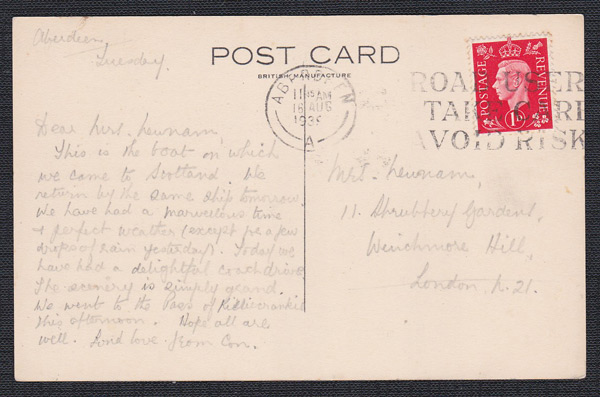 Aberdeen,
Tuesday.
POST CARD
BRITISH MANUFACTURE
ABERDEEN
11 15 AM
16 AUG
193
A
ROAD USER
TAKE CARE
AVOID RISK
POSTAGE
REVENUE
1D
Dear Mrs. Newnam,
This is the boat on which
we came to Scotland. We
return by the same ship tomorrow.
We have had a marvellous time
& perfect weather (except for a few
drops of rain yesterday). Today we
have had a delightful coach drive
The scenery is simply grand.
We went to the Pass of Killiecrankie
this afternoon. Hope all are
well. Fond love from Con.
Mrs. Newnam,
11. Shrubbery Gardens,
Winchmore Hill,
London. N.21.